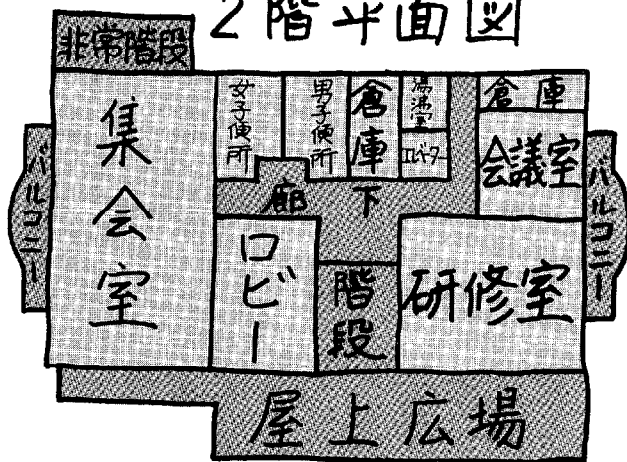 2階平面図
非常階段
集会室
女子便所
男子便所
倉庫
湯沸室
エレベーター
倉庫
会議室
バルコニー
バルコニー
廊下
ロビー
階段
研修室
屋上広場